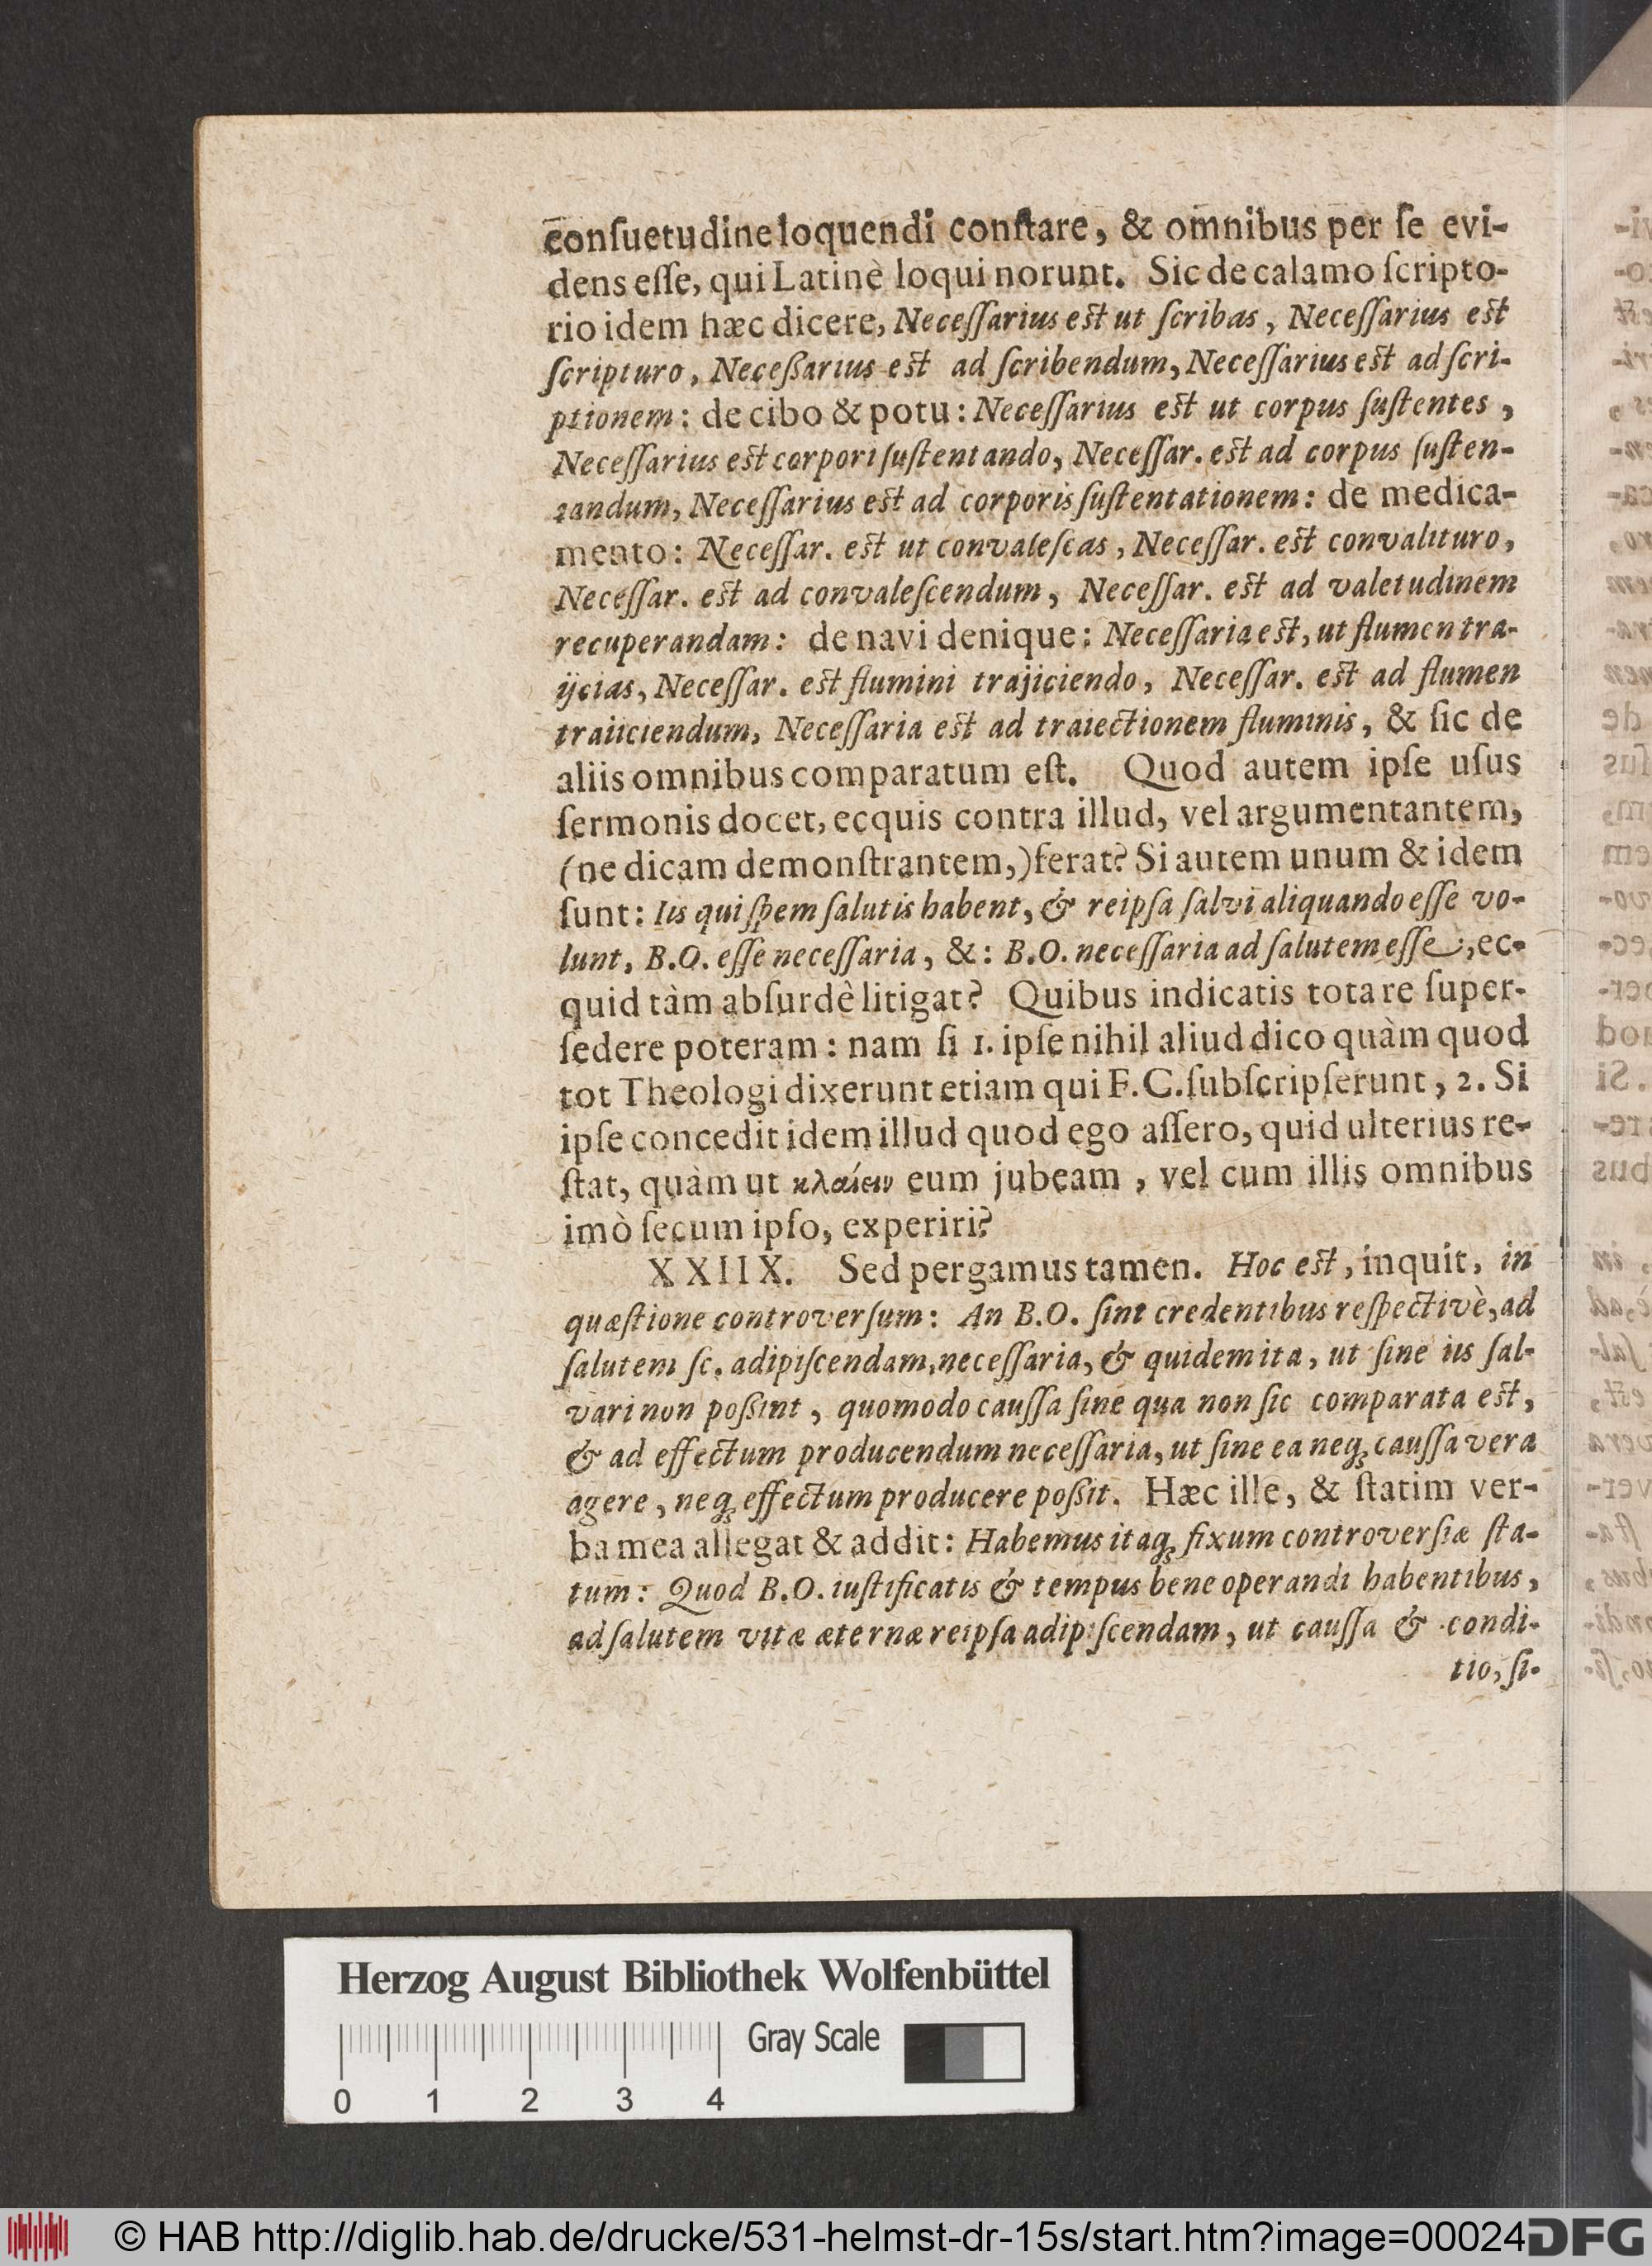 conſuetudine loquendi conſtare, & omnibus per ſe evi-
dens eſſe, qui Latinè loqui norunt. Sic de calamo ſcripto-
rio idem hæc dicere, Neceſſarius est ut ſcribas, Neceſſarius est
ſcripturo, Neceßarius est ad ſcribendum, Neceſſarius est ad ſcri-
ptionem: de cibo & potu: Neceſſarius est ut corpus ſuſtentes,
Neceſſarius est corpori ſuſtentando, Neceſſar. est ad corpus ſuſten-
tandum, Neceſſarius est ad corporis ſuſtentationem: de medica-
mento: Neceſſar. est ut convaleſcas, Neceſſar. est convalituro,
Neceſſar. est ad convaleſcendum, Neceſſar. est ad valetudinem
recuperandam: de navi denique: Neceſſaria est, ut flumen tra-
ijcias, Neceſſar. est flumini trajiciendo, Neceſſar. est ad flumen
traiiciendum, Neceſſaria est ad traiectionem fluminis, & ſic de
aliis omnibus comparatum eſt. Quod autem ipſe uſus
ſermonis docet, ecquis contra illud, vel argumentantem,
(ne dicam demonſtrantem,) ferat? Si autem unum & idem
ſunt: Iis qui ſpem ſalutis habent, & reipſa ſalvi aliquando eſſe vo-
lunt, B.O. eſſe neceſſaria, &: B.O. neceſſaria ad ſalutem eſſe;, ec-
quid tàm abſurdè litigat? Quibus indicatis tota re ſuper-
ſedere poteram: nam ſi 1. ipſe nihil aliud dico quàm quod
tot Theologi dixerunt etiam qui F.C. ſubſcripſerunt, 2. Si
ipſe concedit idem illud quod ego aſſero, quid ulterius re-
ſtat, quàm ut κλαίειν eum jubeam, vel cum illis omnibus
imò ſecum ipſo, experiri?
XXIIX. Sed pergamus tamen. Hoc est, inquit, in
quæſtione controverſum: An B.O. ſint credentibus reſpectivè, ad
ſalutem ſc. adipiſcendam, neceſſaria, & quidem ita, ut ſine iis ſal-
vari non poßint, quomodo cauſſa ſine qua non ſic comparata est,
& ad effectum producendum neceſſaria, ut ſine ea neq; cauſſa vera
agere, neq; effectum producere poßit. Hæc ille, & ſtatim ver-
ba mea allegat & addit: Habemus itaq; fixum controverſiæ ſta-
tum: Quod B.O. iuſtificatis & tempus bene operandi habentibus,
ad ſalutem vitæ æternæ reipſa adipiſcendam, ut cauſſa & condi-
tio, ſi-
Herzog August Bibliothek Wolfenbüttel
Gray Scale
0 1 2 3 4
© HAB http://diglib.hab.de/drucke/531-helmst-dr-15s/start.htm?image=00024
DFG